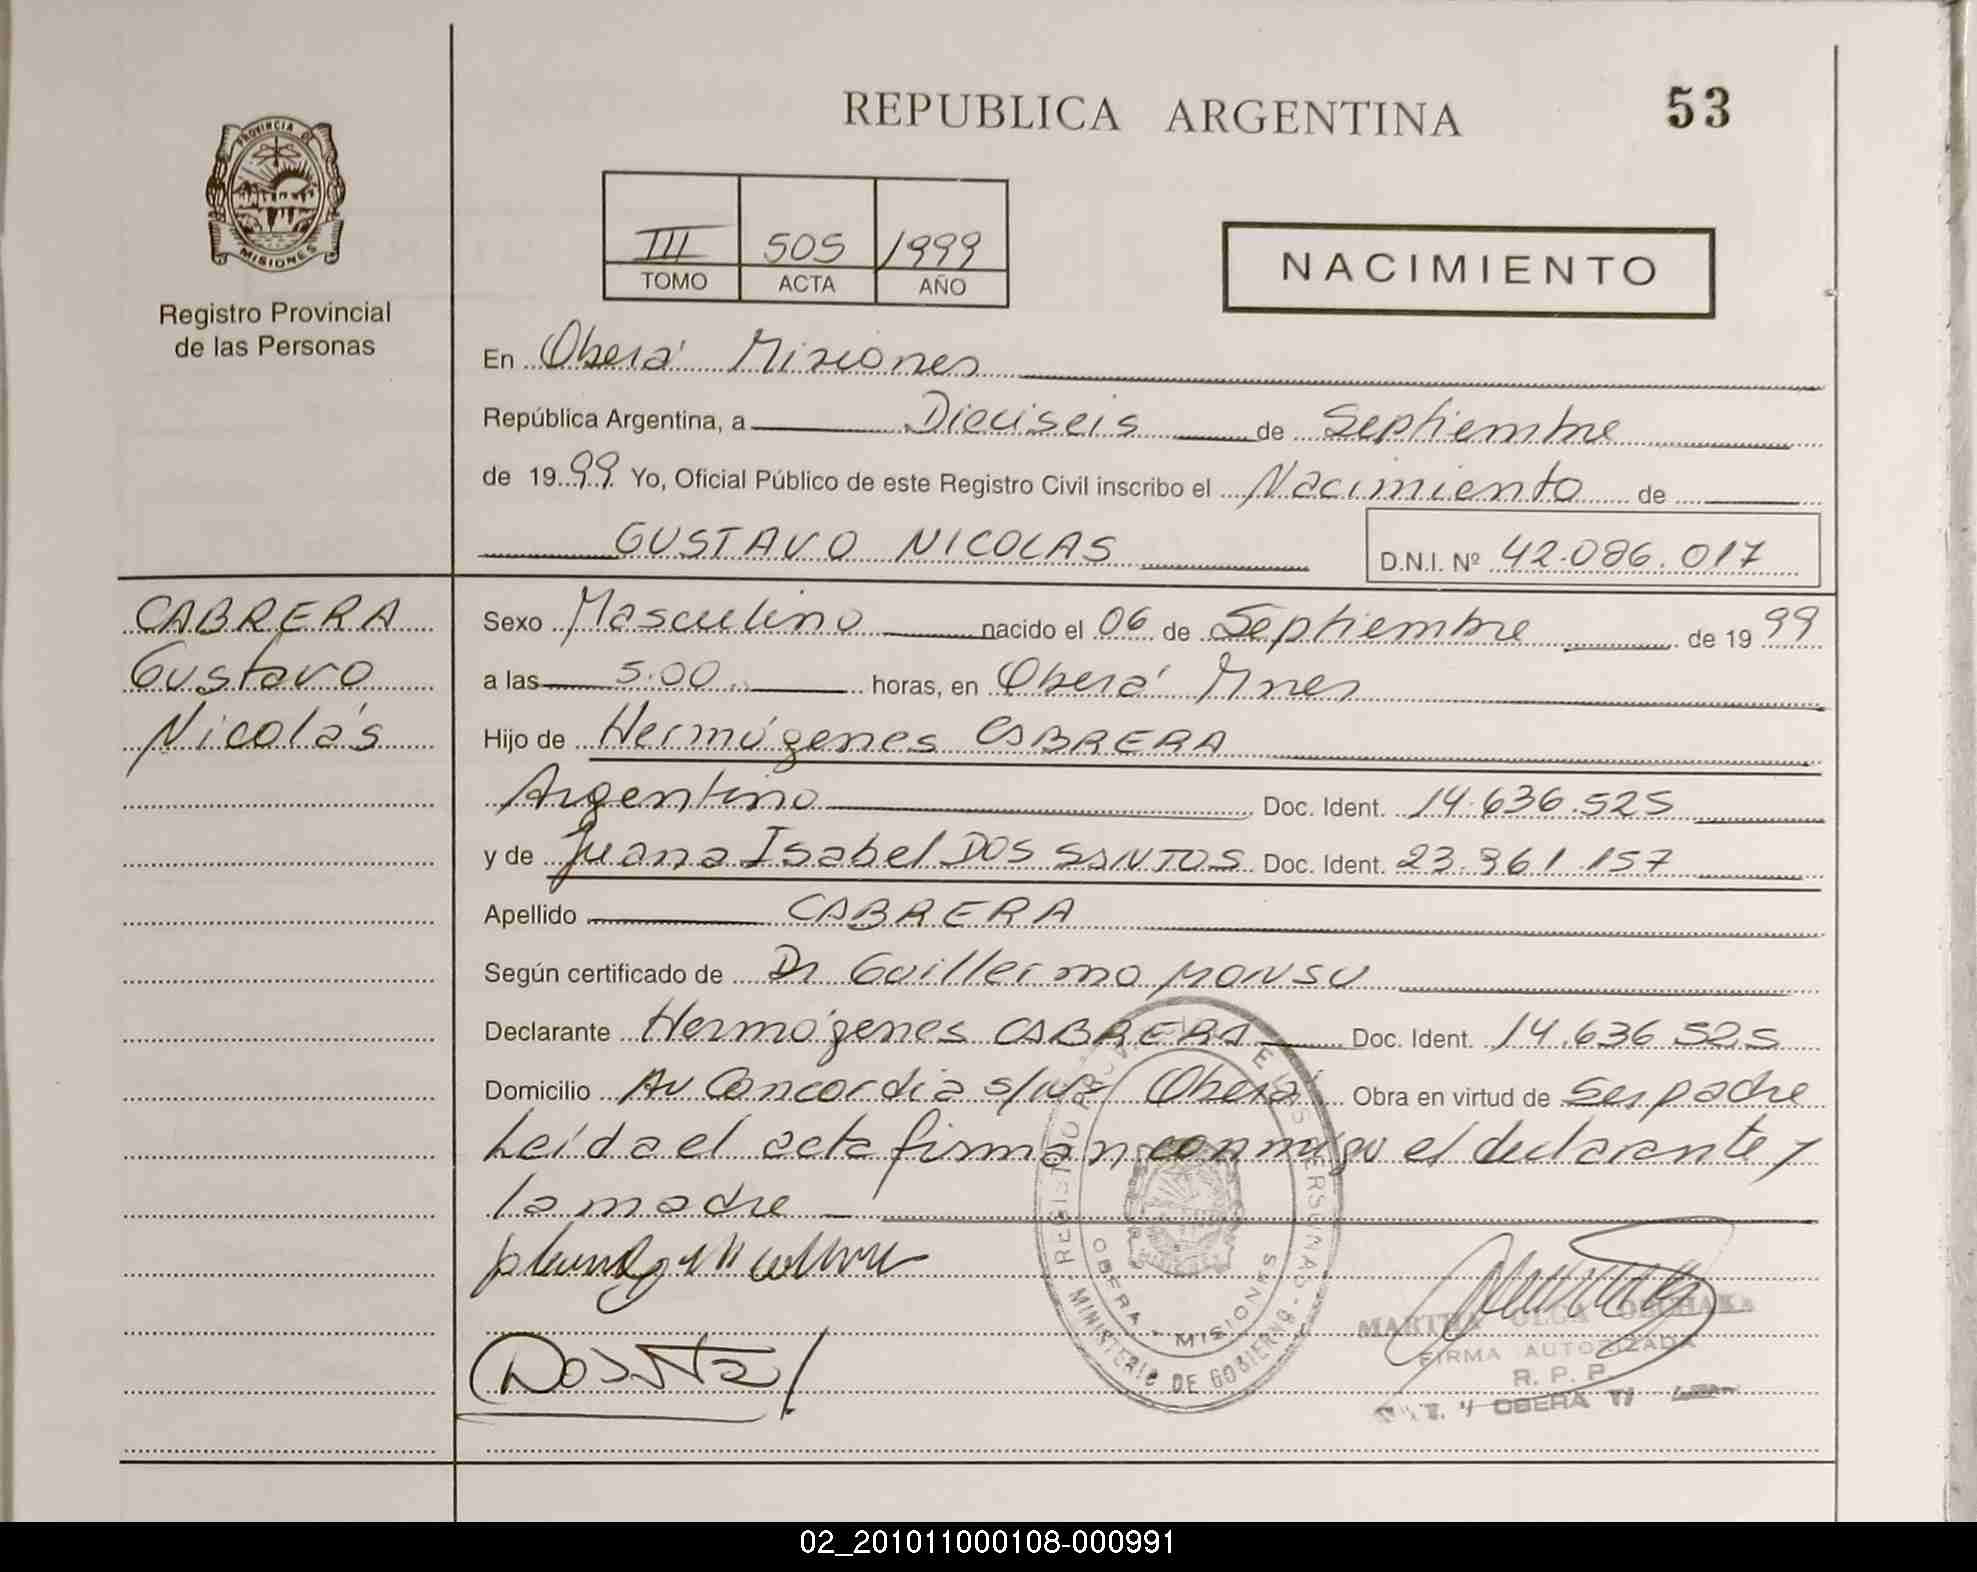 REPUBLICA ARGENTINA
53
PROVINCIA DE
MISIONES
Registro Provincial
de las Personas
III 505 1999
TOMO ACTA AÑO
NACIMIENTO
En Oberá Misiones
República Argentina, a Dieciseis de Septiembre
de 1999 Yo, Oficial Público de este Registro Civil inscribo el Nacimiento de
GUSTAVO NICOLAS
D.N.I. Nº 42.086.017
CABRERA
Gustavo
Nicolás
Sexo Masculino nacido el 06 de Septiembre de 1999
a las 5.00 horas, en Oberá Mnes
Hijo de Hermógenes CABRERA
Argentino Doc. Ident. 14.636.525
y de Juana Isabel DOS SANTOS Doc. Ident. 23.961.157
Apellido CABRERA
Según certificado de Dr Guillermo MONSU
Declarante Hermógenes CABRERA Doc. Ident. 14.636 525
Domicilio Av Concordia s/nº Oberá Obra en virtud de Ser padre
Leída el acta firman conmigo el declarante y
la madre
REGISTRO PROV. DE LAS PERSONAS
OBERA - MISIONES
MINISTERIO DE GOBIERNO
MARTHA OLGA
FIRMA AUTORIZADA
R. P. P.
OBERA
02_201011000108-000991